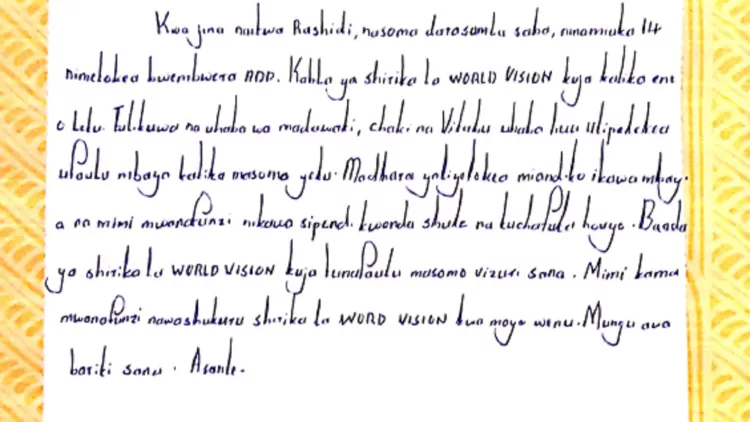 Kwa jina naitwa Rashidi, nasoma darasamla saba, ninamiaka 14
nimelokea bwembwera ADP. Kabla ya shirika la WORLD VISION kuja katika ene
o letu. Tulikuwa na uhaba wa madawati, chaki na Vitabu uhaba huu ulipelekea
ufaulu mbaya katika masomo yetu. Madhara yaliyotokea miandiko ikawa mbay-
a na mimi mwanafunzi nikawa sipendi kwenda shule na kuchafuka hovyo. Baada
ya shirika la WORLD VISION kuja tunafaulu masomo vizuri sana. Mimi kama
mwanafunzi nawashukuru shirika la WORD VISION kwa moyo wenu. Mungu awa
bariki sana. Asante.